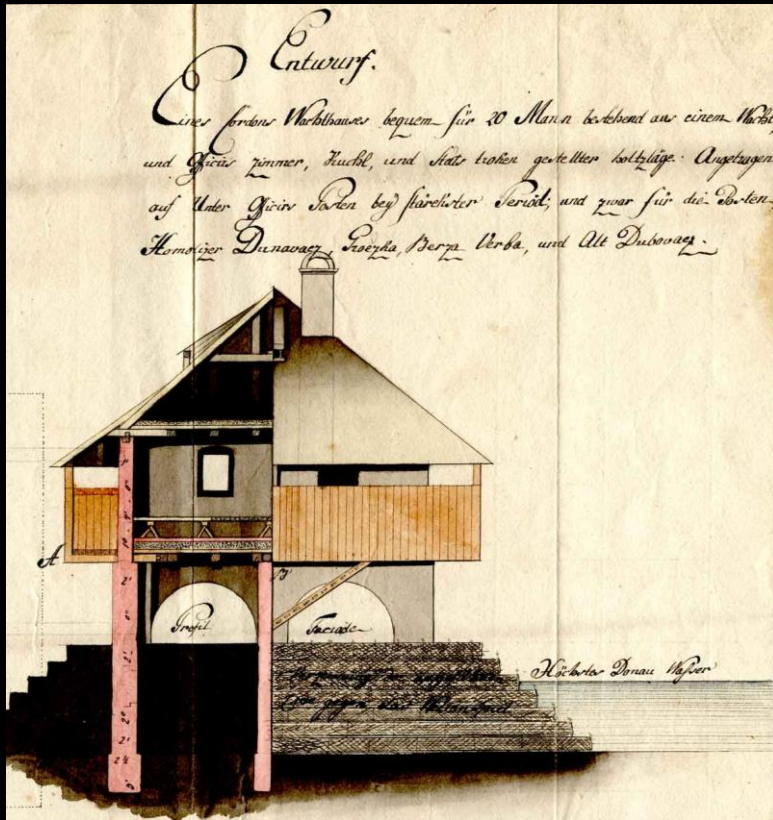 Entwurf.
Eines Cordons Wachthauses bequem für 20 Mann bestehend aus einem Wacht
und Officirs zimmer, Kuchl, und statt troken gestellter holtzläge. Angetragen
auf Unter Officirs Posten bey stärckster Period; und zwar für die Posten
Homolizer Dunavaez, Groczka, Berza Verba, und Alt Dubovaez.
A
B
Profil
Faciade
Höchster Donau Wasser
gegen das